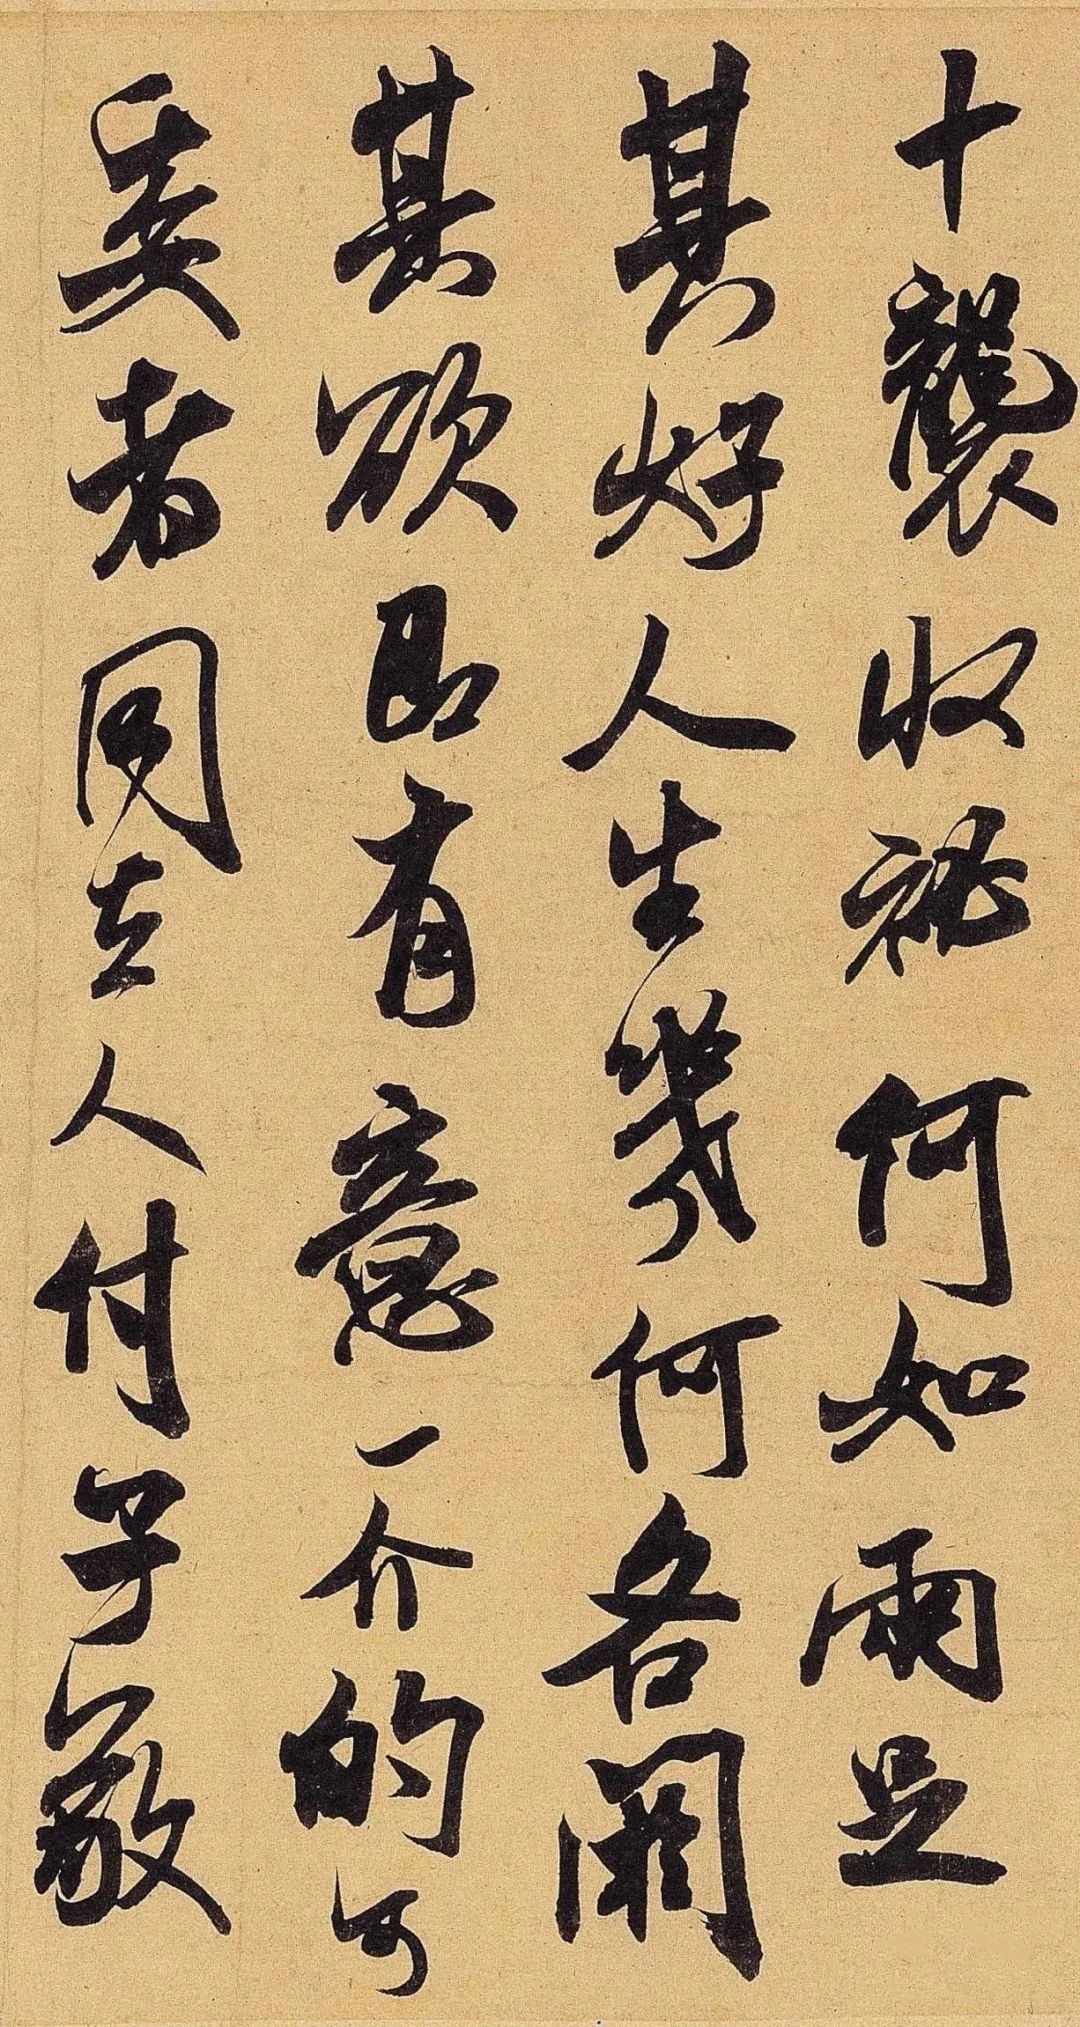 十襲收祕何如兩足
其好人生幾何各閼
其欲即有意一介的可
委者同去人付子敬